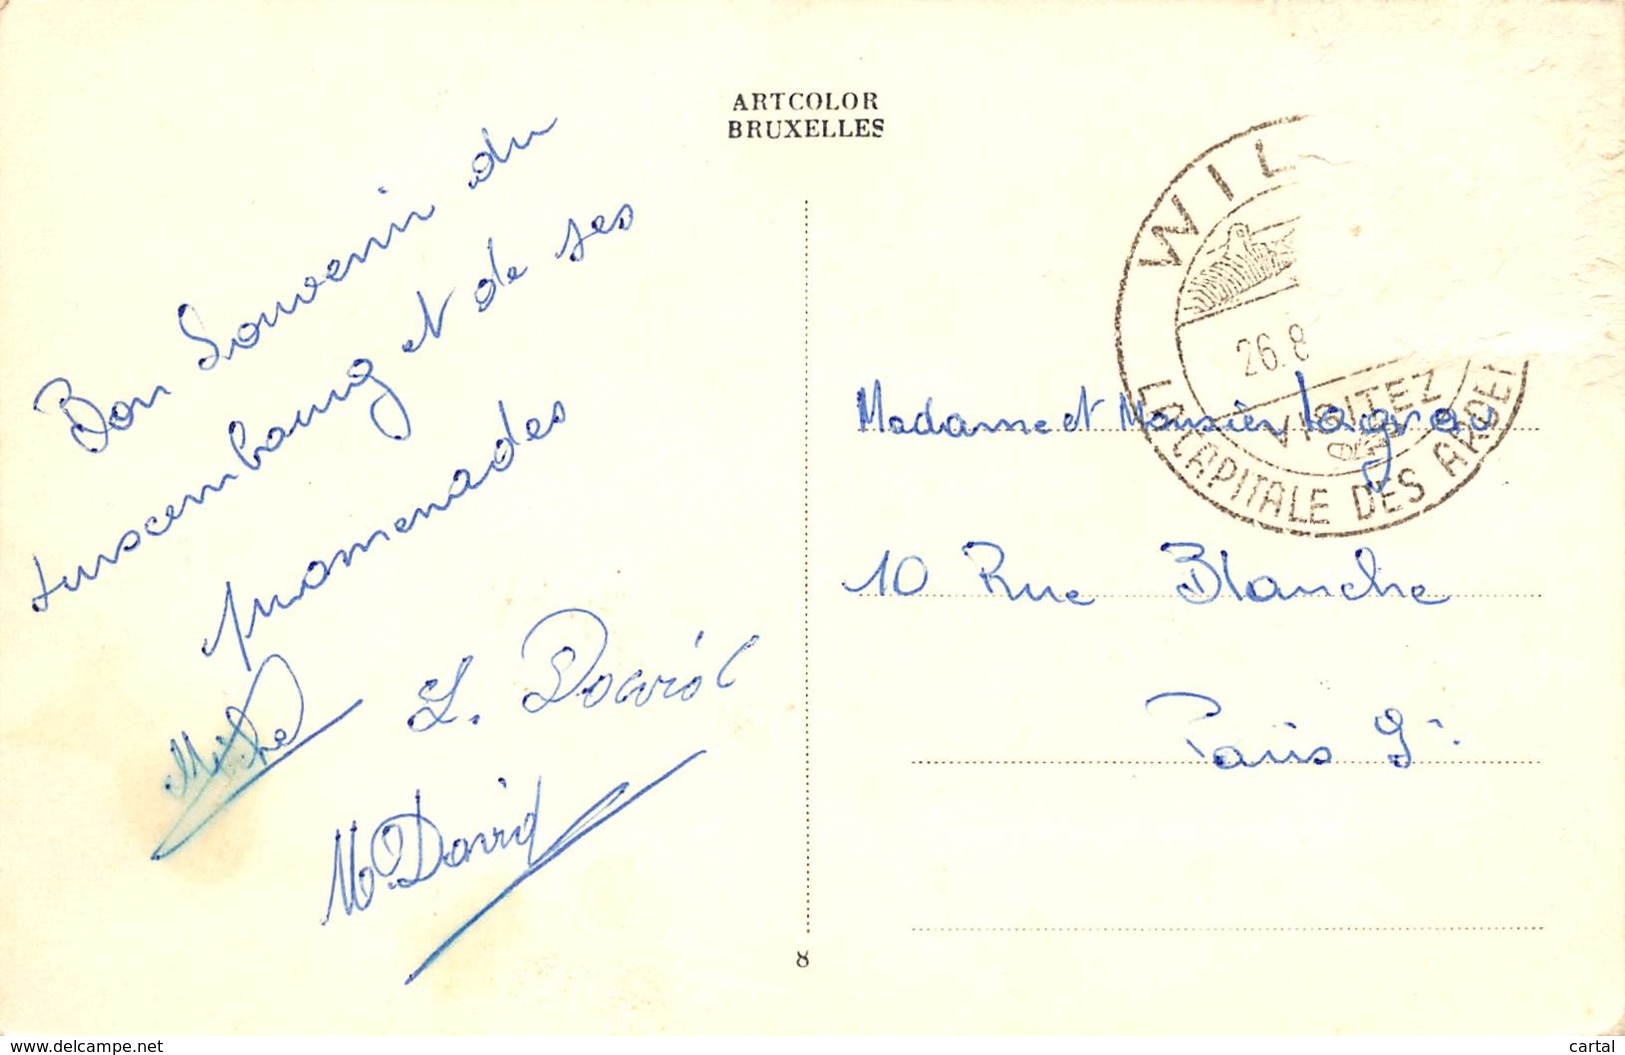 ARTCOLOR
BRUXELLES
Bon Souvenir du
Luxembourg et de ses
promenades
Michel
L. David
M. David
WIL
26.8
VISITEZ
LA CAPITALE DES ARDE
Madame et Monsieur Lagrou
10 Rue Blanche
Paris 9
8
www.delcampe.net
cartal